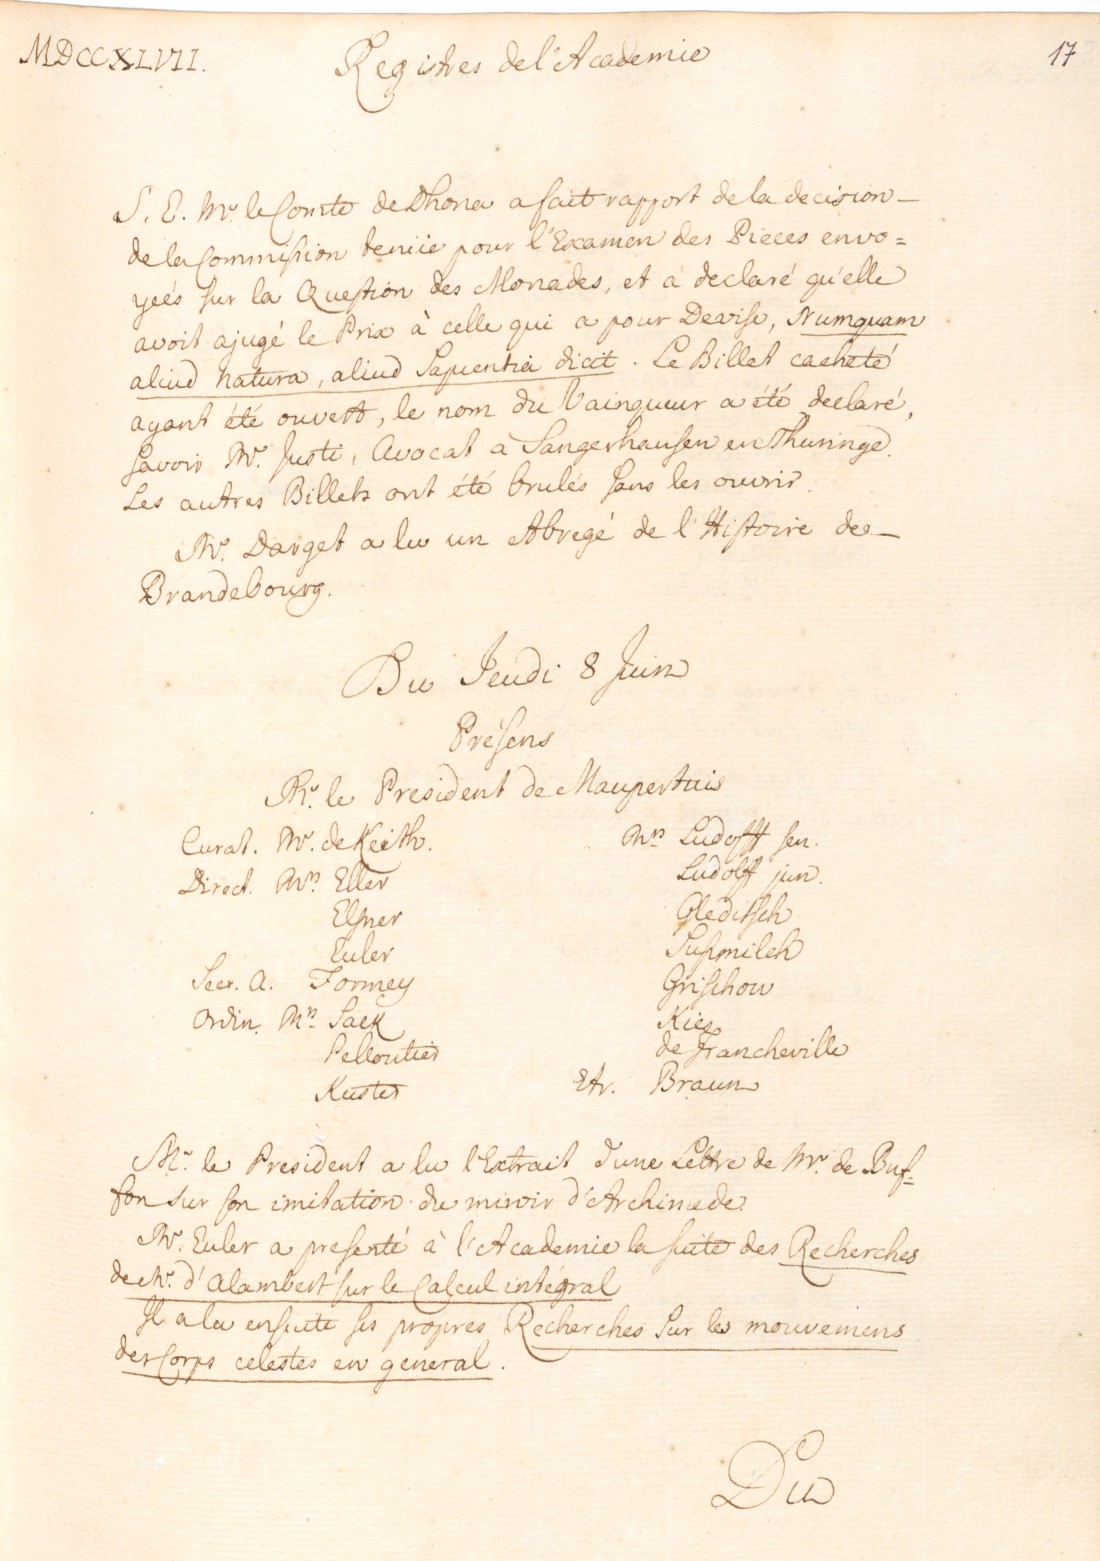 MDCCXLVII.
Registres de l'Academie
17
S. E. Mr. le Comte de Dhona a fait rapport de la decision
de la Commission teniie pour l'Examen des Pieces envo=
yeés sur la Question des Monades, et à declaré qu'elle
avoit ajugé le Prix à celle qui a pour Devise, Numquam
aliud natura, aliud Sapientia dicit. Le Billet cacheté
ayant été ouvert, le nom du Vainqueur a été declaré,
savoir Mr. Justi, Avocat à Sangerhausen en Thuringe.
Les autres Billets ont été brulés sans les ouvrir.
Mr. Darget a lu un Abregé de l'Histoire de
Brandebourg.
Du Jeudi 8 Juin
Présens
Mr. le President de Maupertuis
Curat. Mr. de Keith.
Direct. Mrs Eller
Elsner
Euler
Secr. A. Formey
Ordin. Mrs Sack
Pelloutier
Kuster
Mrs Ludolff sen.
Ludolff jun.
Gleditsch
Susmilch
Grischow
Kies
de Francheville
Etr. Braun
Mr. le President a lu l'Extrait d'une Lettre de Mr. de Buf=
fon sur son imitation du miroir d'Archimede.
Mr. Euler a presenté à l'Academie la suite des Recherches
de Mr. d'Alambert sur le Calcul intégral
Il a lu ensuite ses propres Recherches sur les mouvemens
des Corps celestes en general.
Du